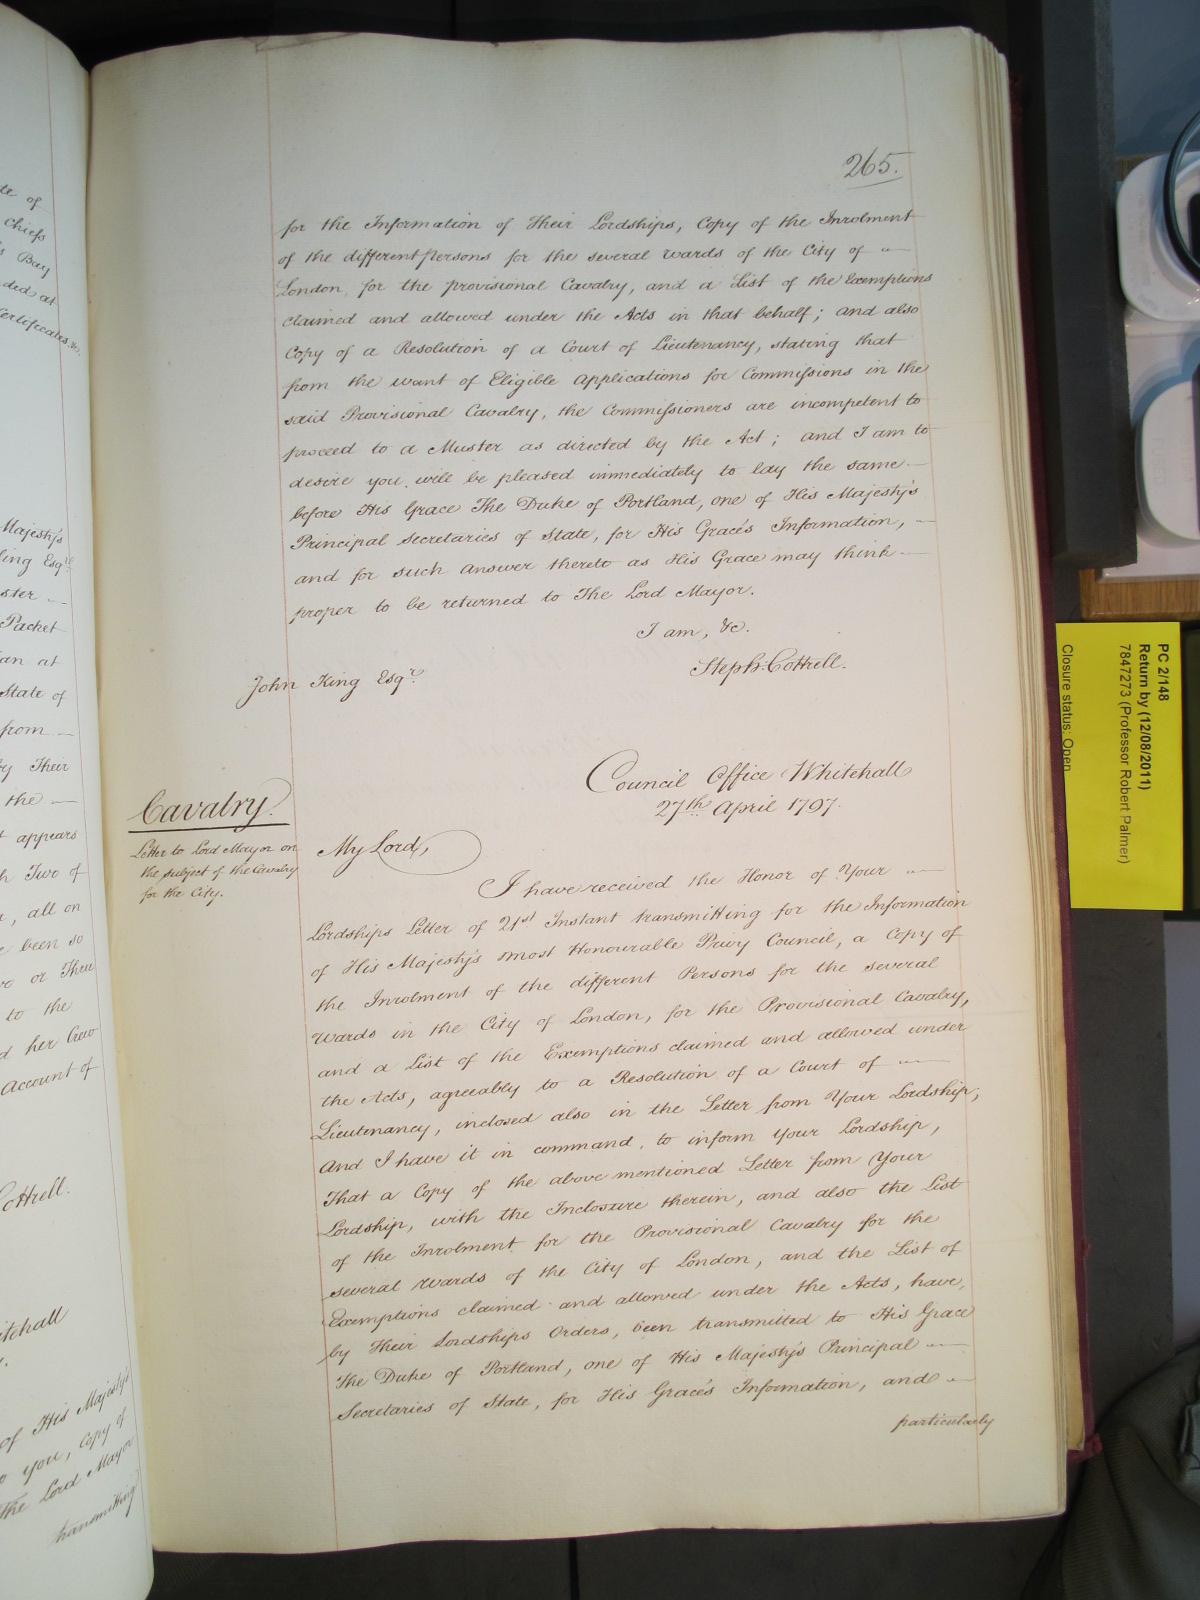 265.
for the Information of Their Lordships, Copy of the Inrolment
of the different Persons for the several Wards of the City of —
London, for the provisional Cavalry, and a List of the Exemptions
claimed and allowed under the Acts in that behalf; and also
Copy of a Resolution of a Court of Lieutenancy, stating that
from the want of Eligible Applications for Commissions in the
said Provisional Cavalry, the Commissioners are incompetent to
proceed to a Muster as directed by the Act; and I am to
desire you will be pleased immediately to lay the same —
before His Grace The Duke of Portland, one of His Majesty's
Principal Secretaries of State, for His Grace's Information, —
and for such Answer thereto as His Grace may think —
proper to be returned to The Lord Mayor.
I am, &c.
Steph: Cottrell.
John King Esqr.
Council Office Whitehall
27th April 1797.
Cavalry.
Letter to Lord Mayor on
the subject of the Cavalry
for the City.
My Lord,
I have received the Honor of Your —
Lordships Letter of 21st Instant transmitting for the Information
of His Majesty's most Honourable Privy Council, a Copy of
the Inrolment of the different Persons for the several
Wards in the City of London, for the Provisional Cavalry,
and a List of the Exemptions claimed and allowed under
the Acts, agreeably to a Resolution of a Court of —
Lieutenancy, inclosed also in the Letter from Your Lordship;
And I have it in command, to inform Your Lordship,
That a Copy of the above mentioned Letter from Your
Lordship, with the Inclosure therein, and also the List
of the Inrolment for the Provisional Cavalry for the
several Wards of the City of London, and the List of
Exemptions claimed and allowed under the Acts, have,
by Their Lordships Orders, been transmitted to His Grace
The Duke of Portland, one of His Majesty's Principal —
Secretaries of State, for His Grace's Information, and —
particularly
PC 2/148
Return by (12/08/2011)
7847273 (Professor Robert Palmer)
Closure status: Open
of
Chiefs
Bay
ded at
Certificates &c.
Majesty's
ing Esqr.
ster —
Packet
an at
State of
from —
by Their
the —
appears
Two of
, all on
been so
or Three
to the
her Crew
Account of
Cottrell.
itehall
of His Majesty's
you, Copy of
The Lord Mayor
transmitting